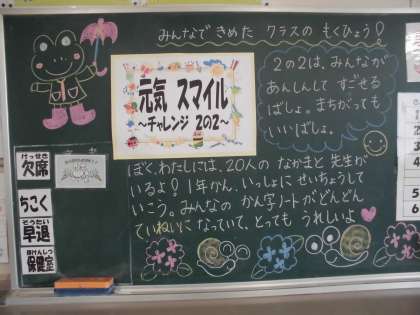 みんなで きめた クラスの もくひょう!
元気 スマイル
~チャレンジ 2の2~
2の2は、みんなが
あんしんして すごせる
ばしょ。まちがっても
いいばしょ。
ぼく、わたしには、20人の なかまと 先生が
いるよ!1年かん、いっしょに せいちょうして
いこう。みんなの かん字ノートが どんどん
ていねいに なっていて、とっても うれしいよ
けっせき
欠席
ちこく
そうたい
早退
ほけんしつ
保健室
3
4
5
6